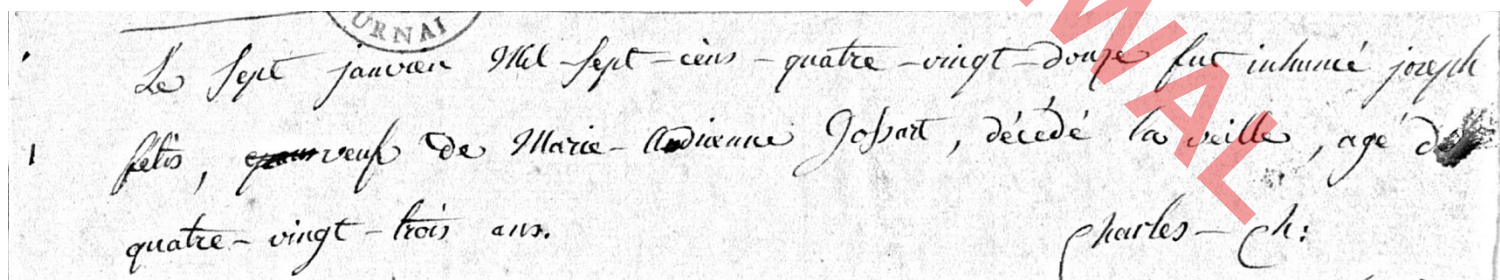 URNAI
WAL
Le sept janvier Mil-sept-cens-quatre-vingt-douze fut inhumé joseph
1 fétis, veuf de Marie-Andrienne Jossart, décedé la veille, agé de
quatre-vingt-trois ans.
Charles-Ch: